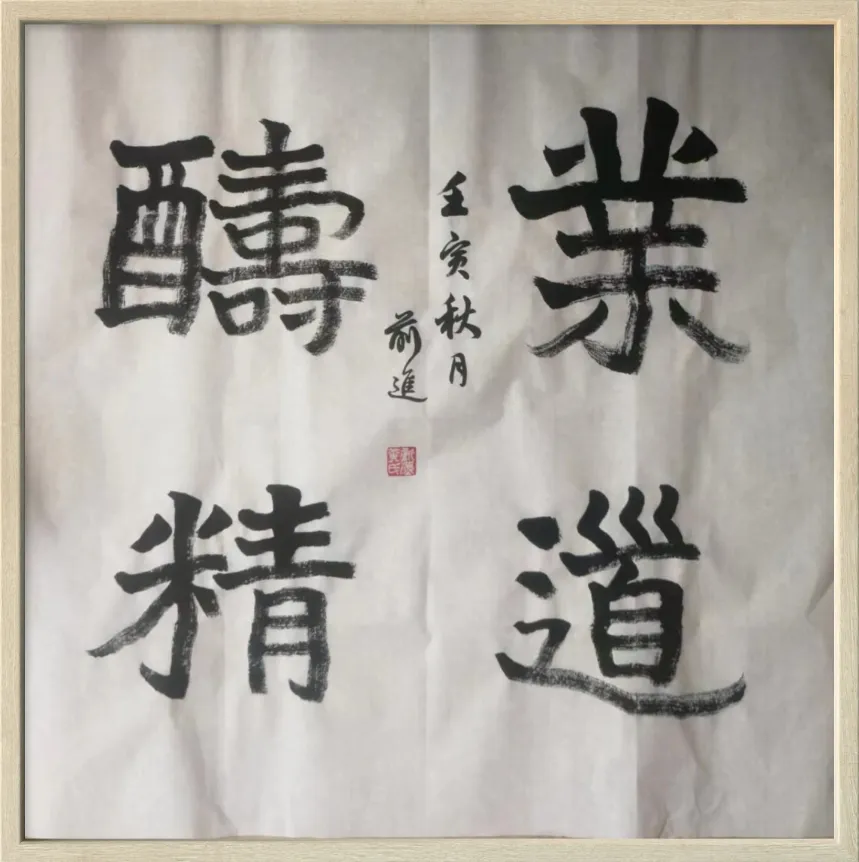 業道
醻精
壬寅秋月
前進